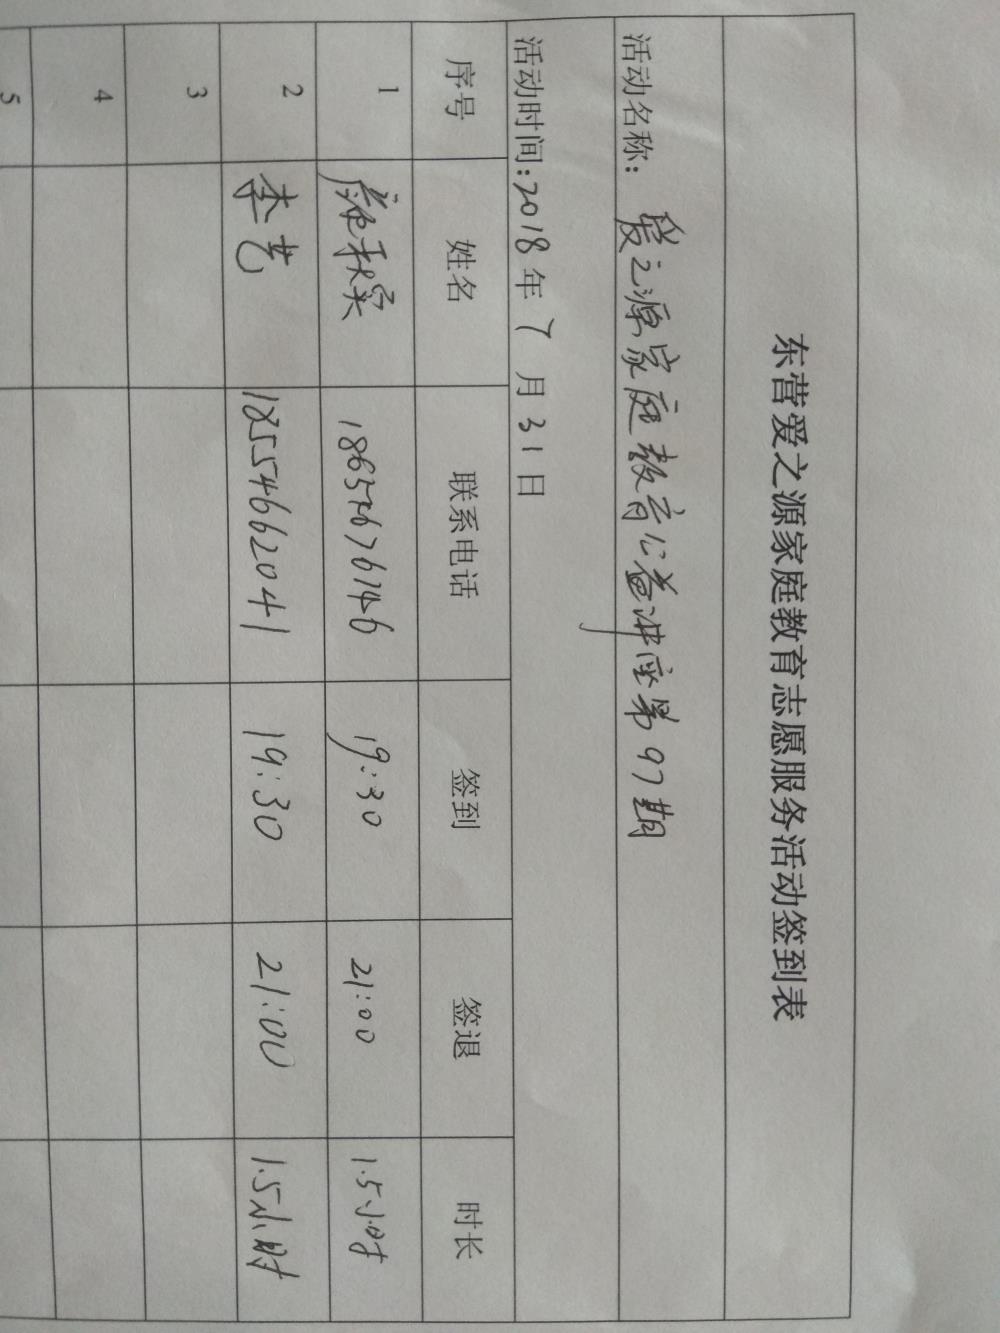 东营爱之源家庭教育志愿服务活动签到表
活动名称：爱之源家庭教育公益讲座第97期
活动时间：2018年7月31日
序号 姓名 联系电话 签到 签退 时长
1 19:30 21:00 1.5小时
2 李艺 18554662041 19:30 21:00 1.5小时
3
4
5